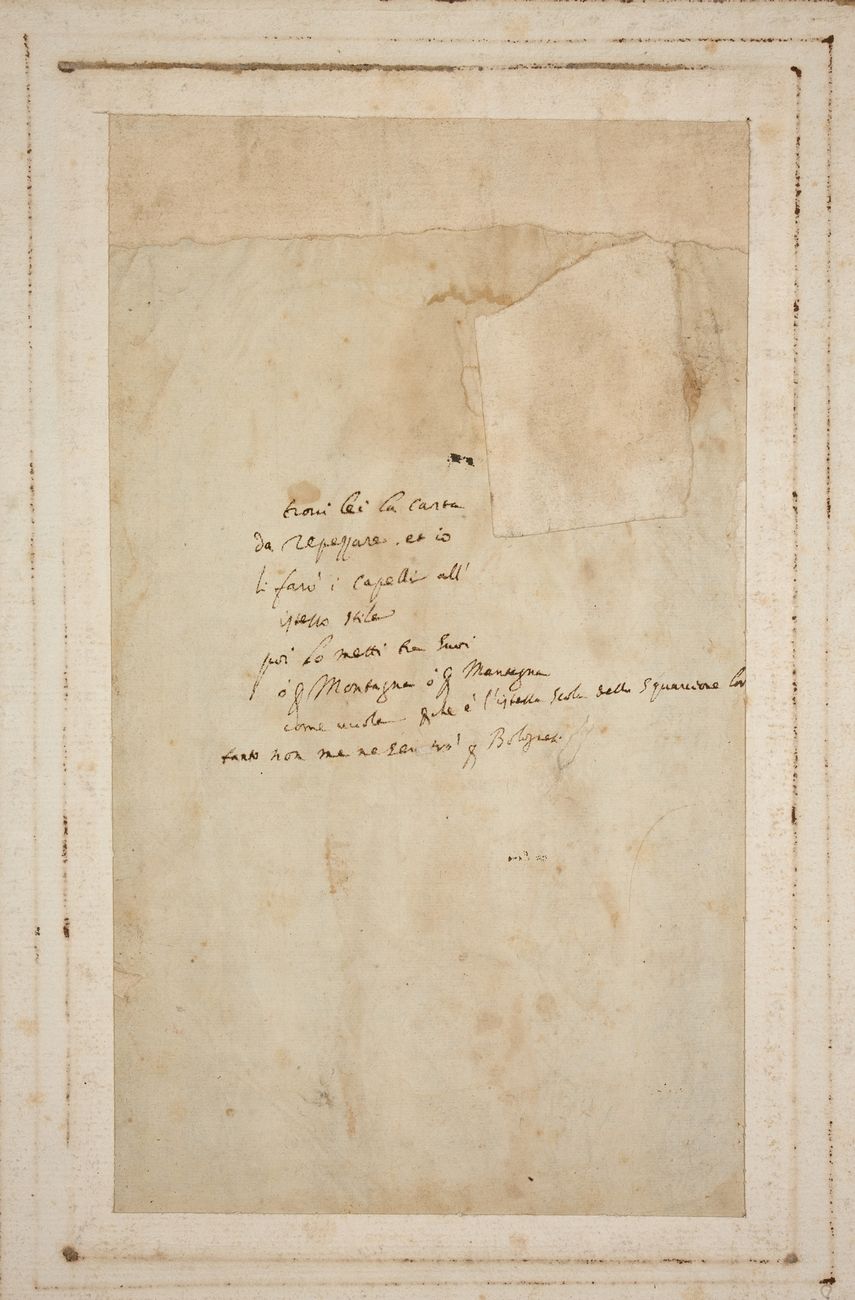 trovi lei la carta
da repessare. et io
li farò i capelli all'
istesso stile
poi lo metti tra suoi
ó p Montagna ó p Mantegna
come uuole che é l'istessa Scola dello Squarcione
tanto non me ne p Bologna